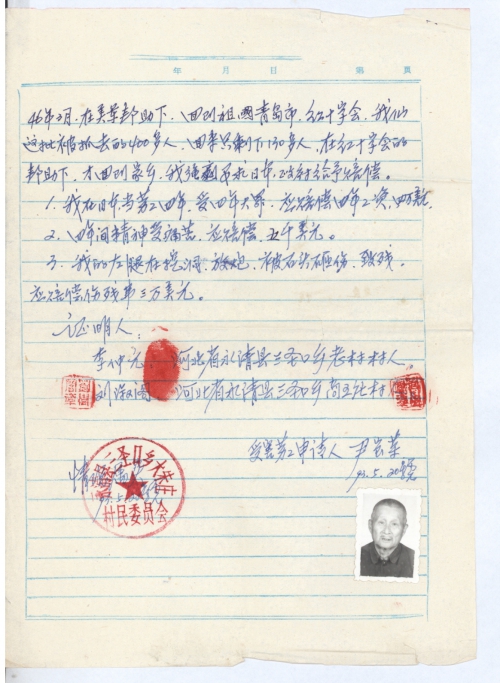 年 月 日 第 页
46年2月,在美军帮助下,回到祖国青岛市,红十字会,我们
这批被抓去的400多人,回来只剩下130多人,在红十字会的
帮助下,才回到家乡,我强烈要求日本政府给予赔偿。
1. 我在日本当劳工四年,受四年大罪,应赔偿四年工资,四万美元
2. 四年间精神受痛苦,应赔偿,五千美元。
3. 我的左腿在挖洞,放炮,被石头砸伤,致残,
应赔偿伤残费三万美元。
证明人:
李仲元 河北省永清县三圣口乡老村村人
刘淑 河北省永清县三圣口乡 村
受害劳工申请人 尹 荣
93.5.20号
情况
93.5.20
三圣口乡
村民委员会